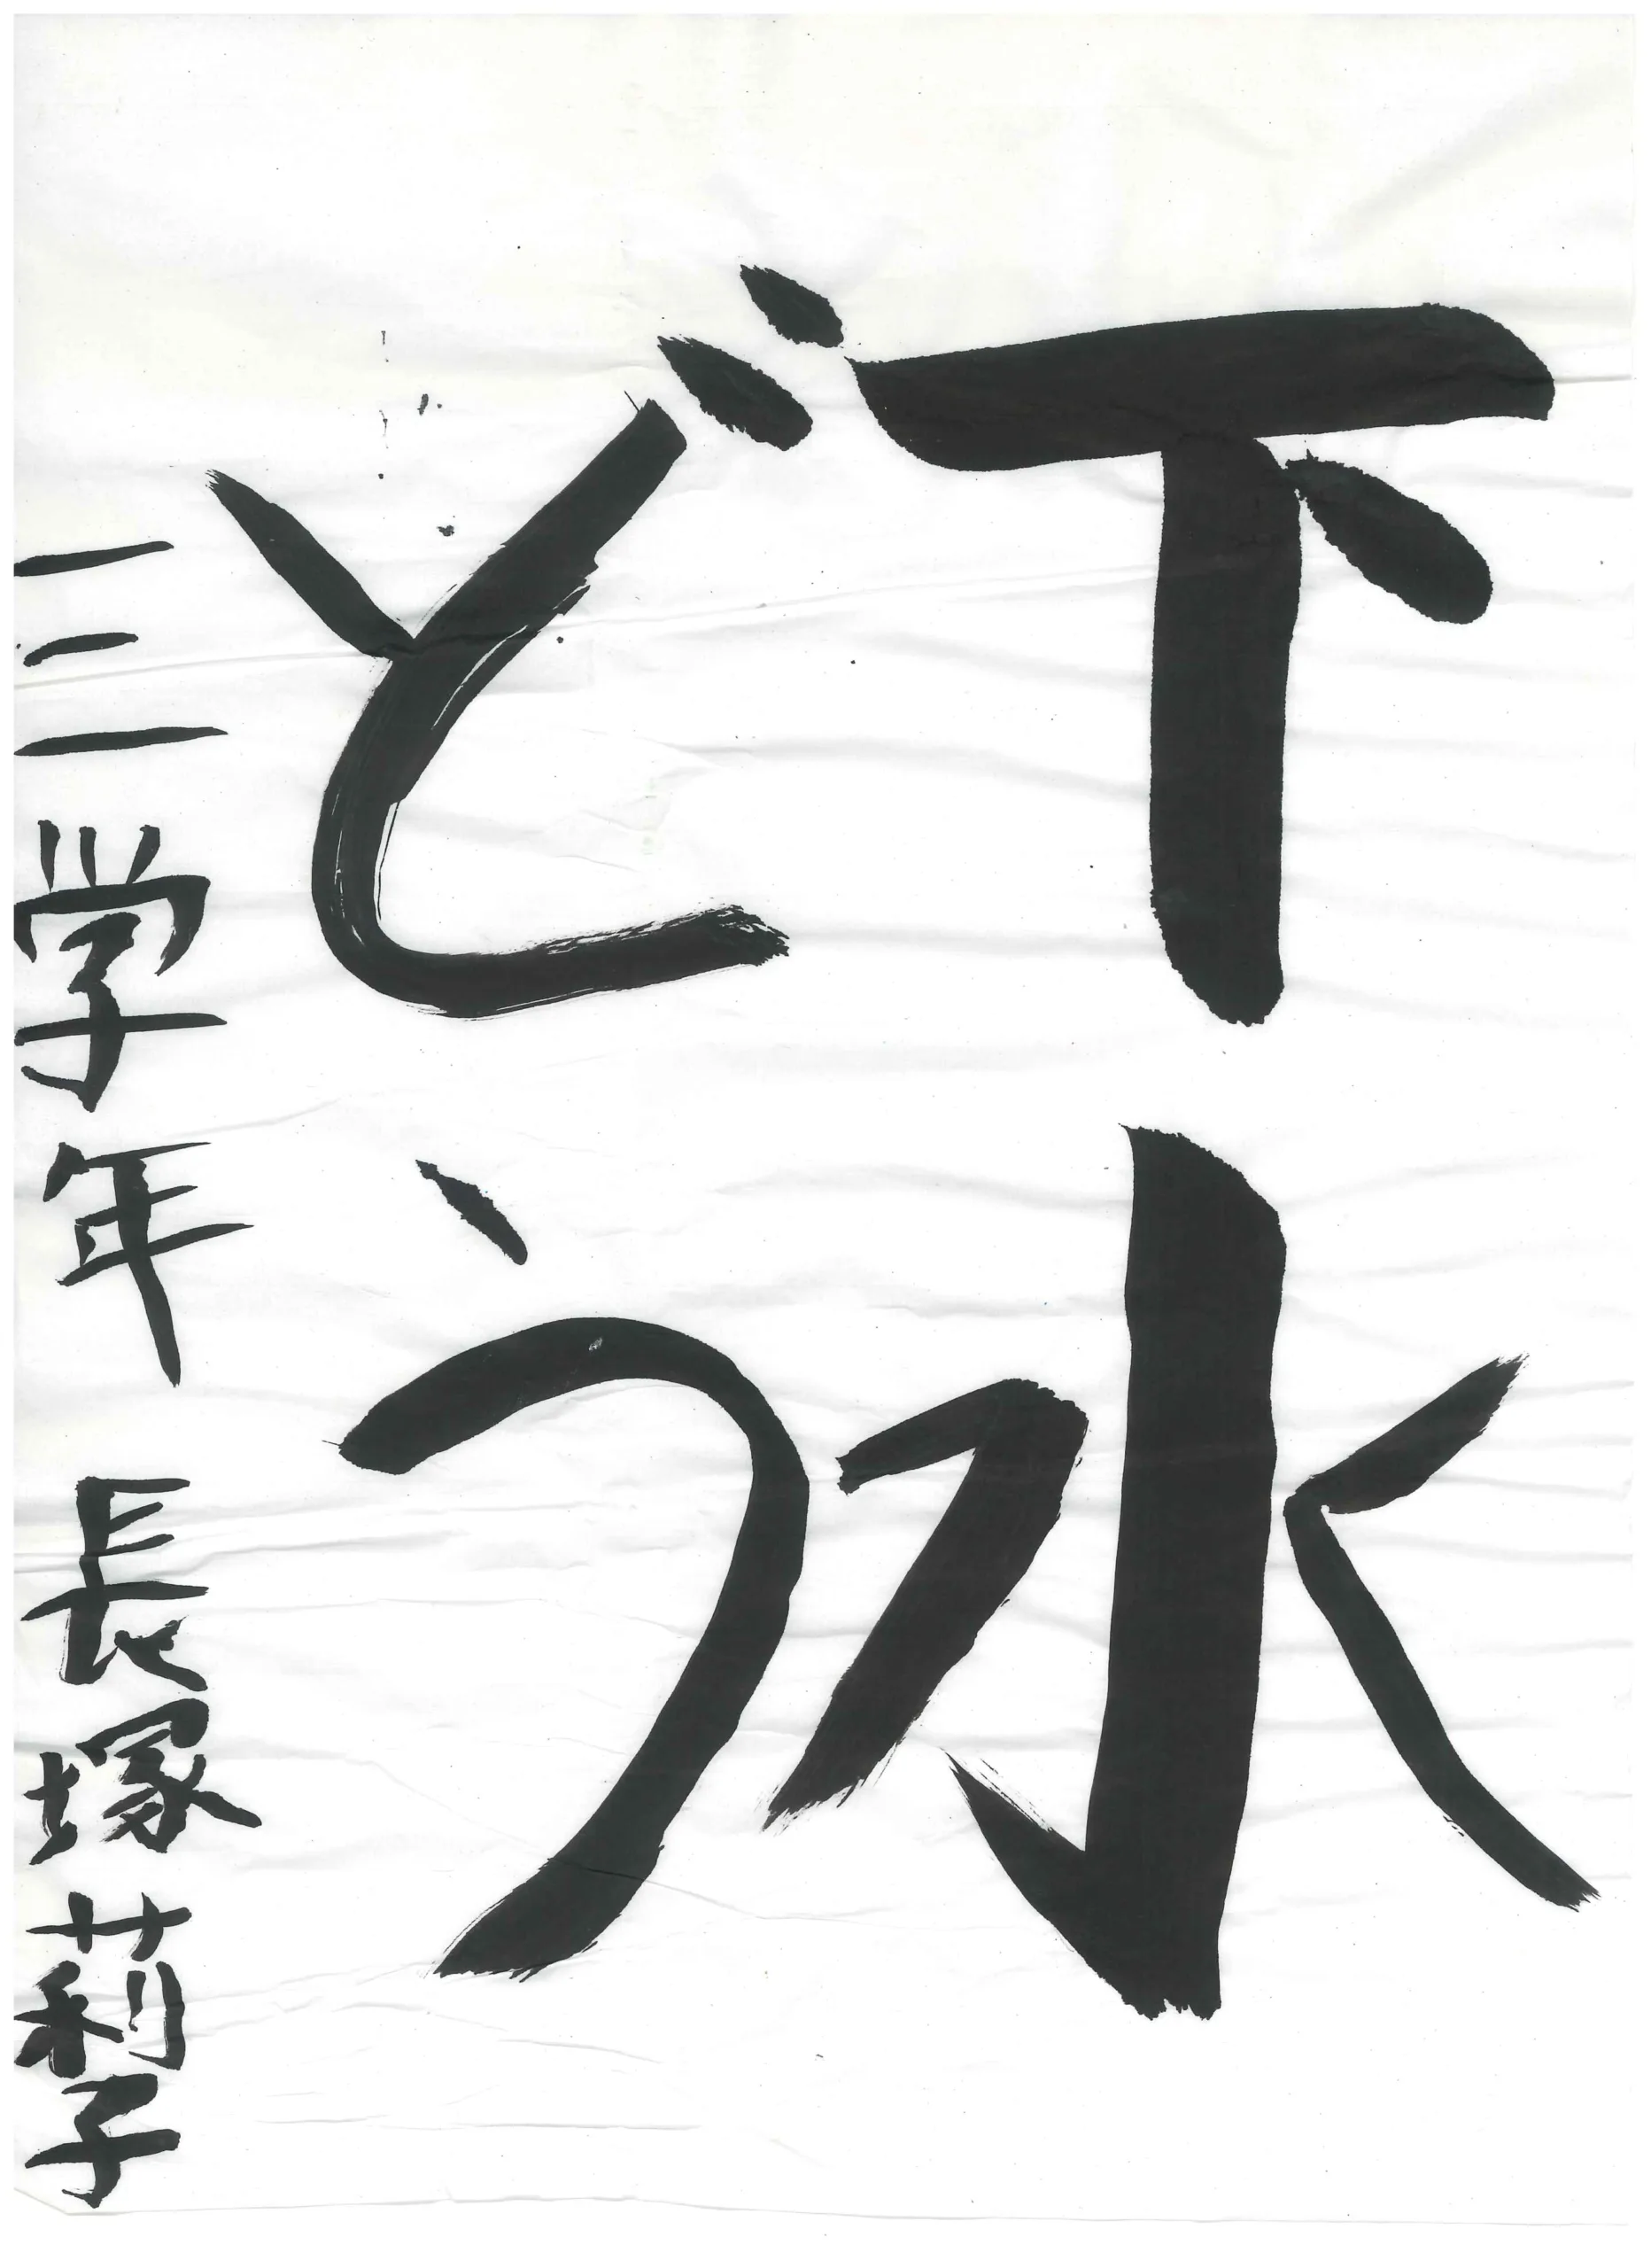 下水
どう
三学年 長塚莉子